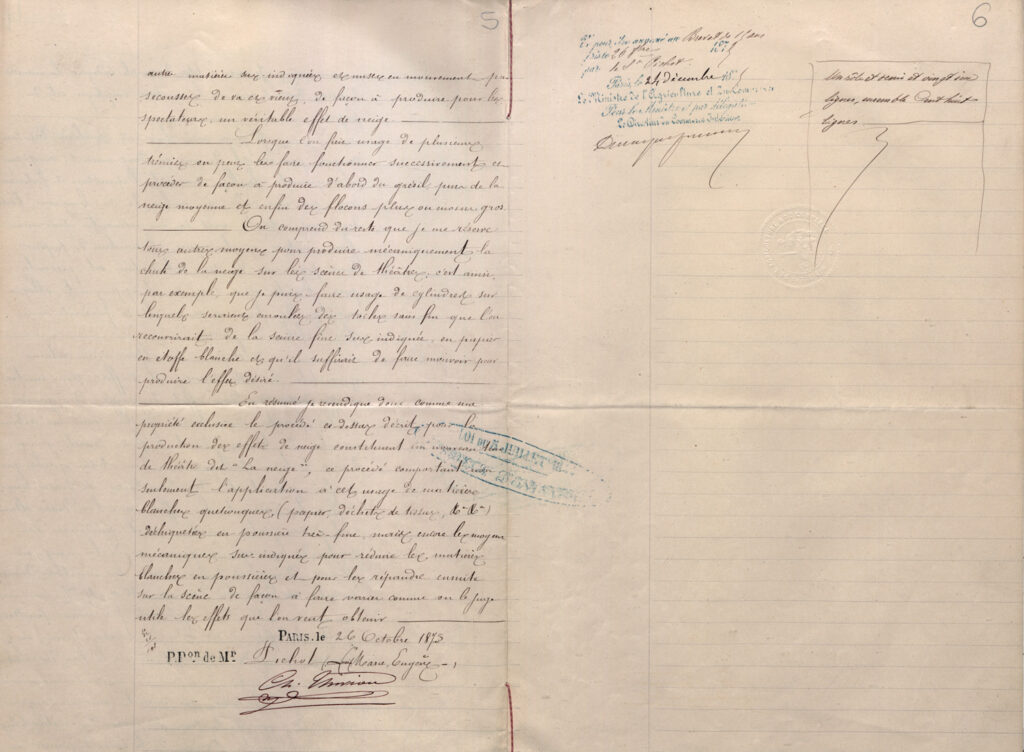 5
autre matière sus-indiquée est mise en mouvement par
secousses de va et vient, de façon à produire pour les
spectateurs, un véritable effet de neige.
Lorsque l'on fait usage de plusieurs
trémies on peut les faire fonctionner successivement et
procéder de façon à produire d'abord du grésil, puis de la
neige moyenne et enfin des flocons plus ou moins gros.
On comprend du reste que je me réserve
tous autres moyens pour produire mécaniquement la
chute de la neige sur les scènes de théâtres, c'est ainsi,
par exemple, que je puis faire usage de cylindres sur
lesquels seraient enroulées des toiles sans fin que l'on
recouvrirait de la sciure fine sus indiquée, en papier
en étoffe blanche et qu'il suffirait de faire mouvoir pour
produire l'effet désiré.
En résumé je revendique donc comme une
propriété exclusive le procédé ci-dessus décrit pour la
production des effets de neige constituant un nouveau
de théâtre dit "La neige", ce procédé comportant non
seulement l'application à cet usage de matières
blanches quelconques, (papier, déchets de tissus, &a &a)
déchiquetées en poussière très-fine, mais encore les moyens
mécaniques sus-indiqués pour réduire les matières
blanches en poussières et pour les répandre ensuite
sur la scène de façon à faire varier comme on le juge
utile les effets que l'on veut obtenir
PARIS, le 26 Octobre 1875
P.Pon de Mr Fichot (Marie Eugène)
Ch. Thirion
LOI DU 5 JUILLET 18
6
Vu pour être annexé au Brevet de 15 ans
pris le 26 8bre 1875
par le Sr Fichot
Paris, le 24 décembre 1875
Le Ministre de l'Agriculture et du Commerce
Pour le Ministre et par délégation
Le Directeur du Commerce Intérieur
Un rôle et demi et vingt une
lignes, ensemble cent huit
lignes